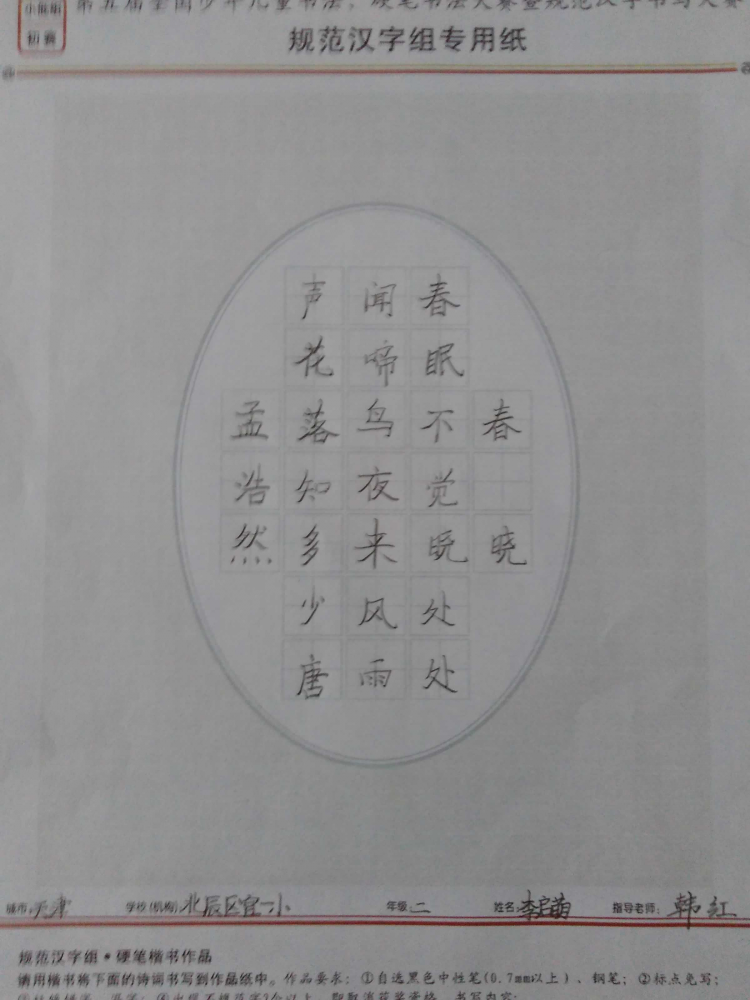 初赛
第五届全国少年儿童书法、硬笔书法大赛暨规范汉字书写大赛
规范汉字组专用纸
春晓
春眠不觉晓处处
闻啼鸟夜来风雨
声花落知多少唐
孟浩然
城市:天津 学校(机构):北辰区宜一小 年级:二 姓名:李启萌 指导老师:韩红
规范汉字组•硬笔楷书作品
请用楷书将下面的诗词书写到作品纸中。作品要求:①自选黑色中性笔(0.7mm以上)、钢笔;②标点免写;